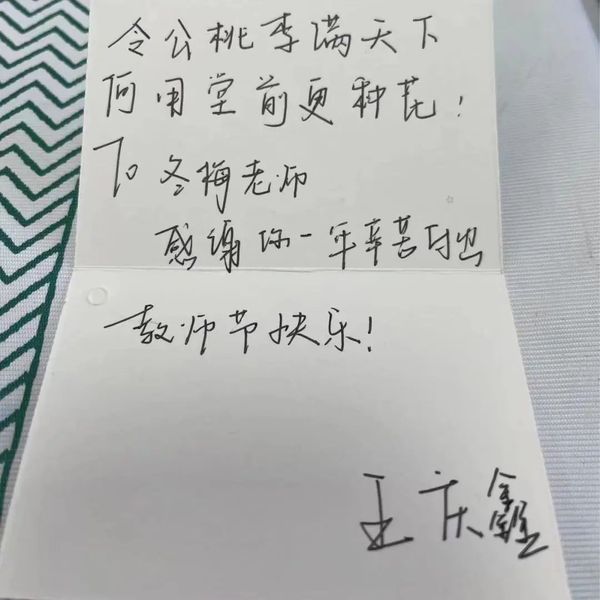 令公桃李满天下
何用堂前更种花！
To 冬梅老师
感谢你一年辛苦付出
教师节快乐！
王庆鑫